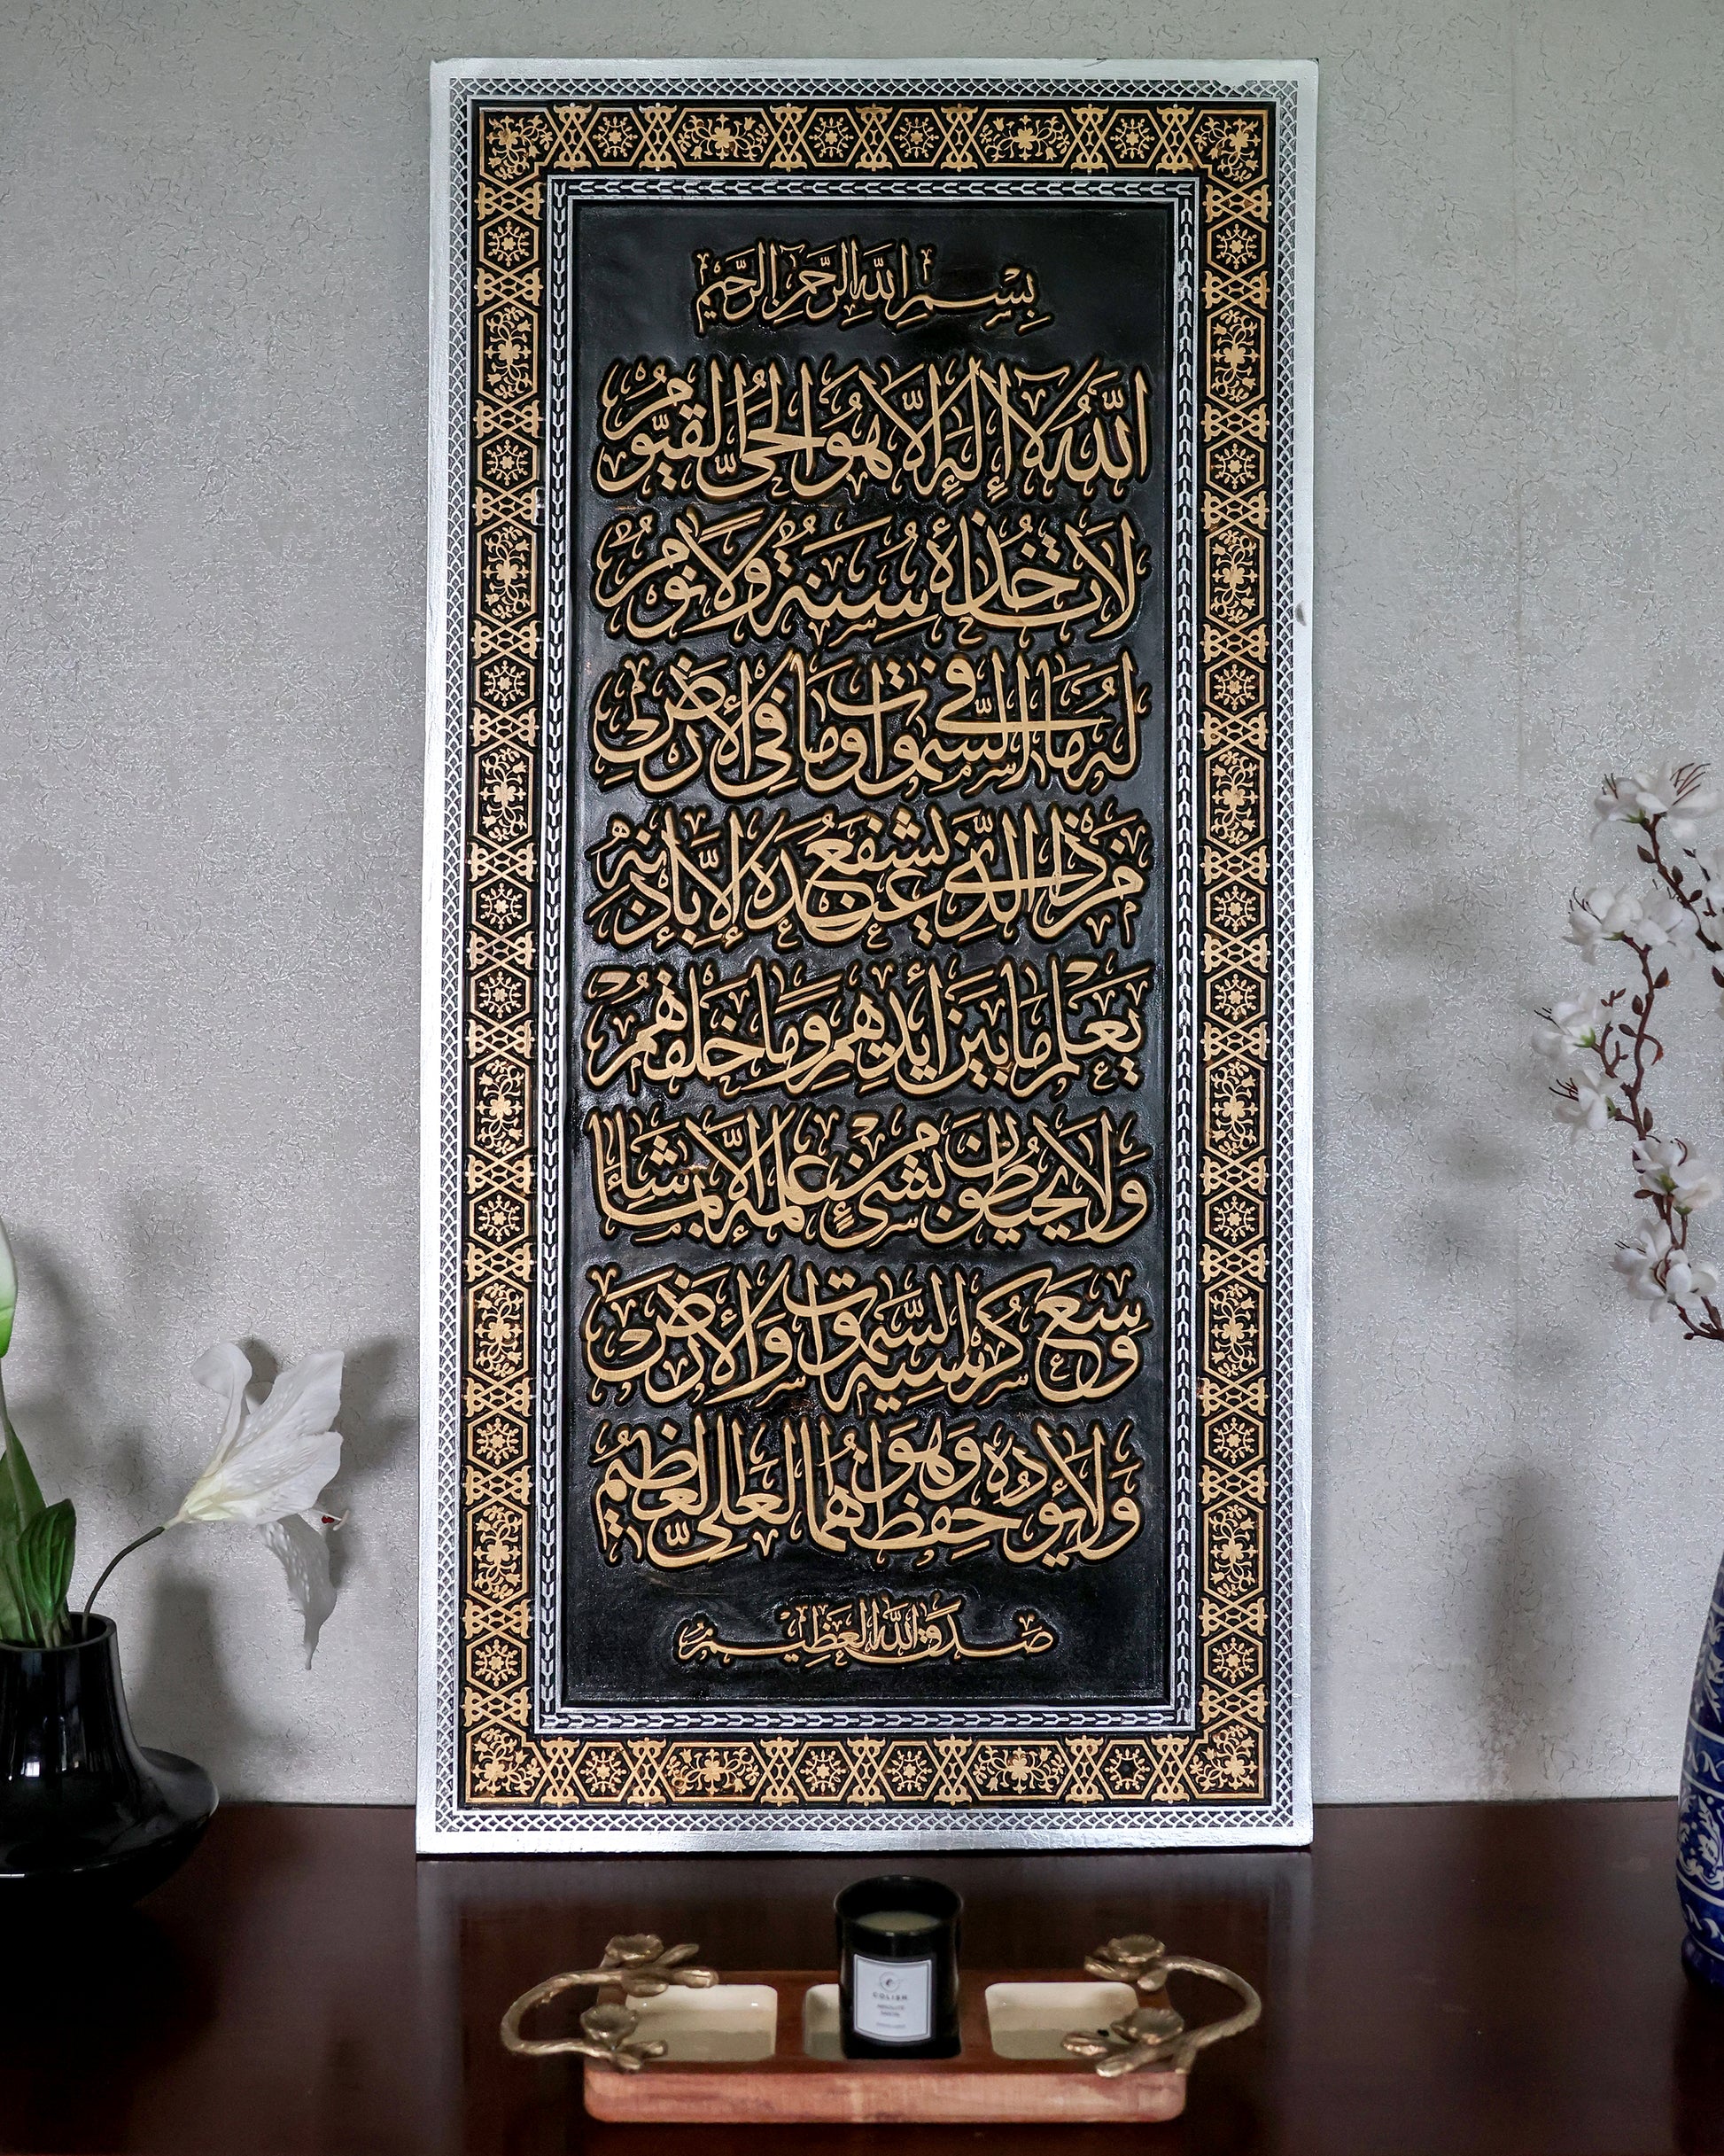 بِسْمِ اللَّهِ الرَّحْمَنِ الرَّحِيمِ
اللَّهُ لَا إِلَهَ إِلَّا هُوَ الْحَيُّ الْقَيُّومُ
لَا تَأْخُذُهُ سِنَةٌ وَلَا نَوْمٌ
لَهُ مَا فِي السَّمَوَاتِ وَمَا فِي الْأَرْضِ
مَنْ ذَا الَّذِي يَشْفَعُ عِنْدَهُ إِلَّا بِإِذْنِهِ
يَعْلَمُ مَا بَيْنَ أَيْدِيهِمْ وَمَا خَلْفَهُمْ
وَلَا يُحِيطُونَ بِشَيْءٍ مِنْ عِلْمِهِ إِلَّا بِمَا شَاءَ
وَسِعَ كُرْسِيُّهُ السَّمَوَاتِ وَالْأَرْضَ
وَلَا يَؤُدُهُ حِفْظُهُمَا وَهُوَ الْعَلِيُّ الْعَظِيمُ
صَدَقَ اللَّهُ الْعَظِيمُ
COLISH